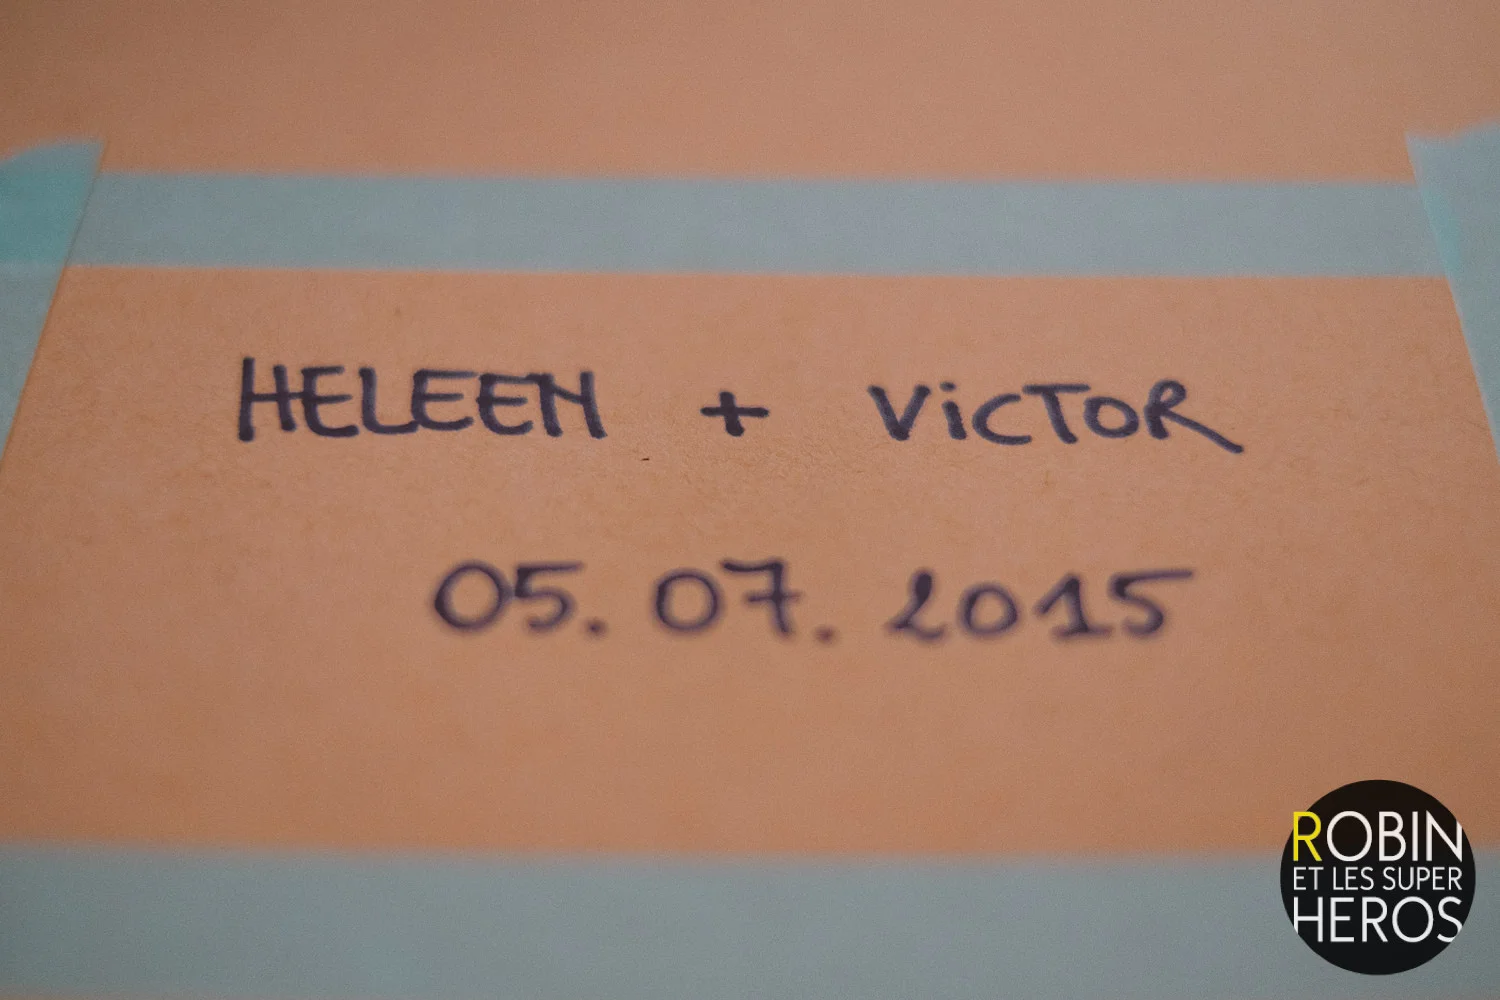 HELEEN + ViCTOR
05.07.2015
ROBIN
ET LES SUPER
HEROS